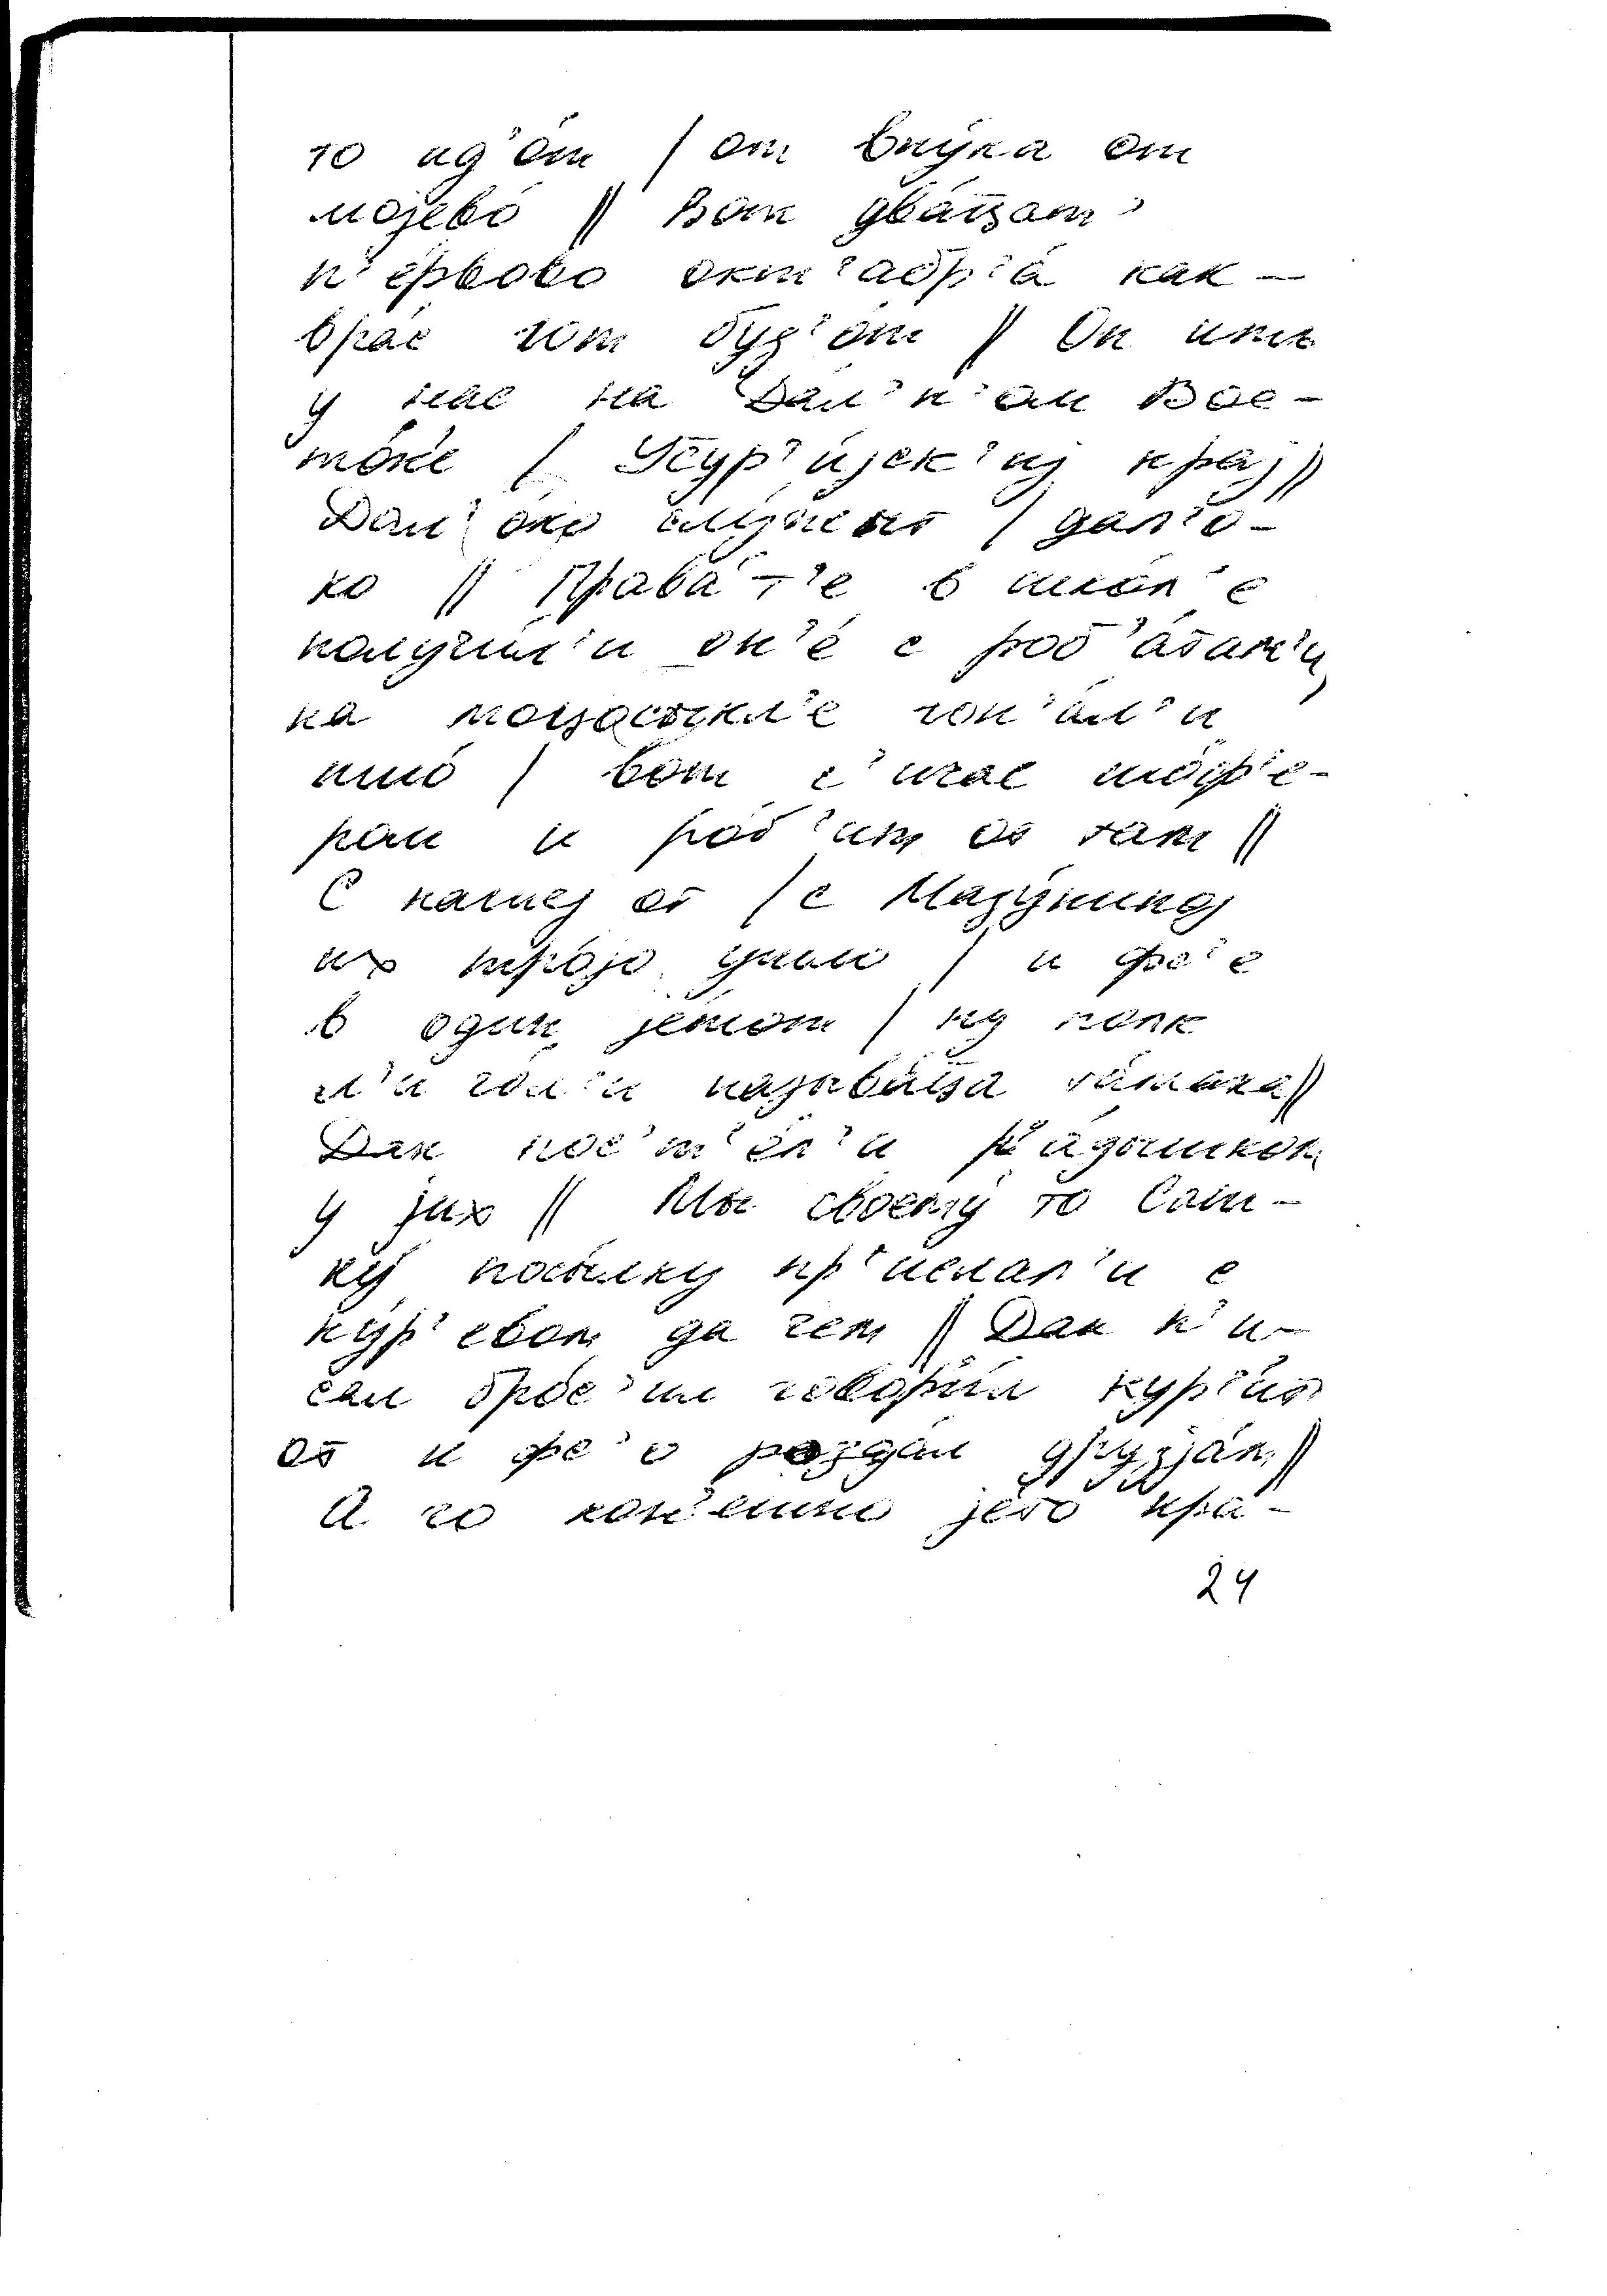 то ид'о́т / от вну́ка от
моjево́ // Вот два́ц̄ат'
п'е́рвово окт'абр'а́ как –
врас гот буд'о́т // Он ит
у нас на Дал'н'ом Вос –
то́к'е / Усур'и́jск'иj краj //
Дал'око слу́жит / дал'о –
ко // Права́-т'е в шко́л'е
получи́л'и он'е́ с роб'а́там'и,
на мотоцы́кл'е гон'а́л'и
што / вот с'ичас шо́ф'е –
ром и роб'ит от там //
С нашеj от / с Мазунинꙋ
их тро́jо ушло / и фс'е
в один jетот / ну полк
л'и чо́л'и называ́ц̄а та́мака //
Дак пос'т'е́л'и р'а́дышком
у jих // Мы своему́ то Саш –
ку́ посы́лку пр'исылал'и с
ку́р'евом да чем // Дак п'и –
сал бро́с'ил говори́л кур'и́т
от и фс'о роздал друзjа́м //
А чо кон'ешно jево кра –
24